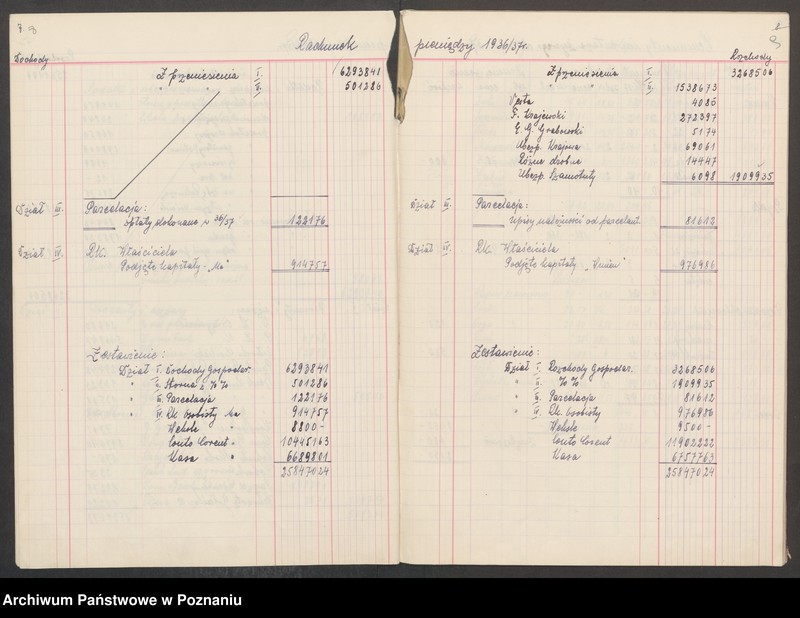 Rachunek pieniędzy 1936/37r.
Dochody
Z przeniesienia I-1 6293841
" " 501286
Dział III. Parcelacja:
spłaty dokonane w 36/37 122176
Dział IV. Rk. Właściciela
Podjęte kapitały - „Ma" 914757
Zestawienie:
Dział I. Dochody Gospodar. 6293841
" II. Storna z %% 501286
" III. Parcelacja 122176
" IV. Rk. osobisty Ma 914757
Weksle " 8800 -
Conto Corent " 10445163
Kasa " 6689801
25847024
Rozchody
Z przeniesienia 3268506
" " 1538673
Vesta 4085
F. Krajewski 272397
E. G. Grabowski 5174
Ubezp. Krajowa 69061
Różne drobne 14447
Ubezp. Szamotuły 6098 1909935
Dział III. Parcelacja:
wpisy należności od parcelant. 81612
Dział IV. Rk. Właściciela
Podjęte kapitały „Winien" 976986
Zestawienie:
Dział I. Rozchody Gospodar. 3268506
" II. %% 1909935
" III. Parcelacja 81612
" IV. Rk. osobisty 976986
Weksle 9500 -
Conto Corent 11902222
Kasa 6757763
25847024
Archiwum Państwowe w Poznaniu